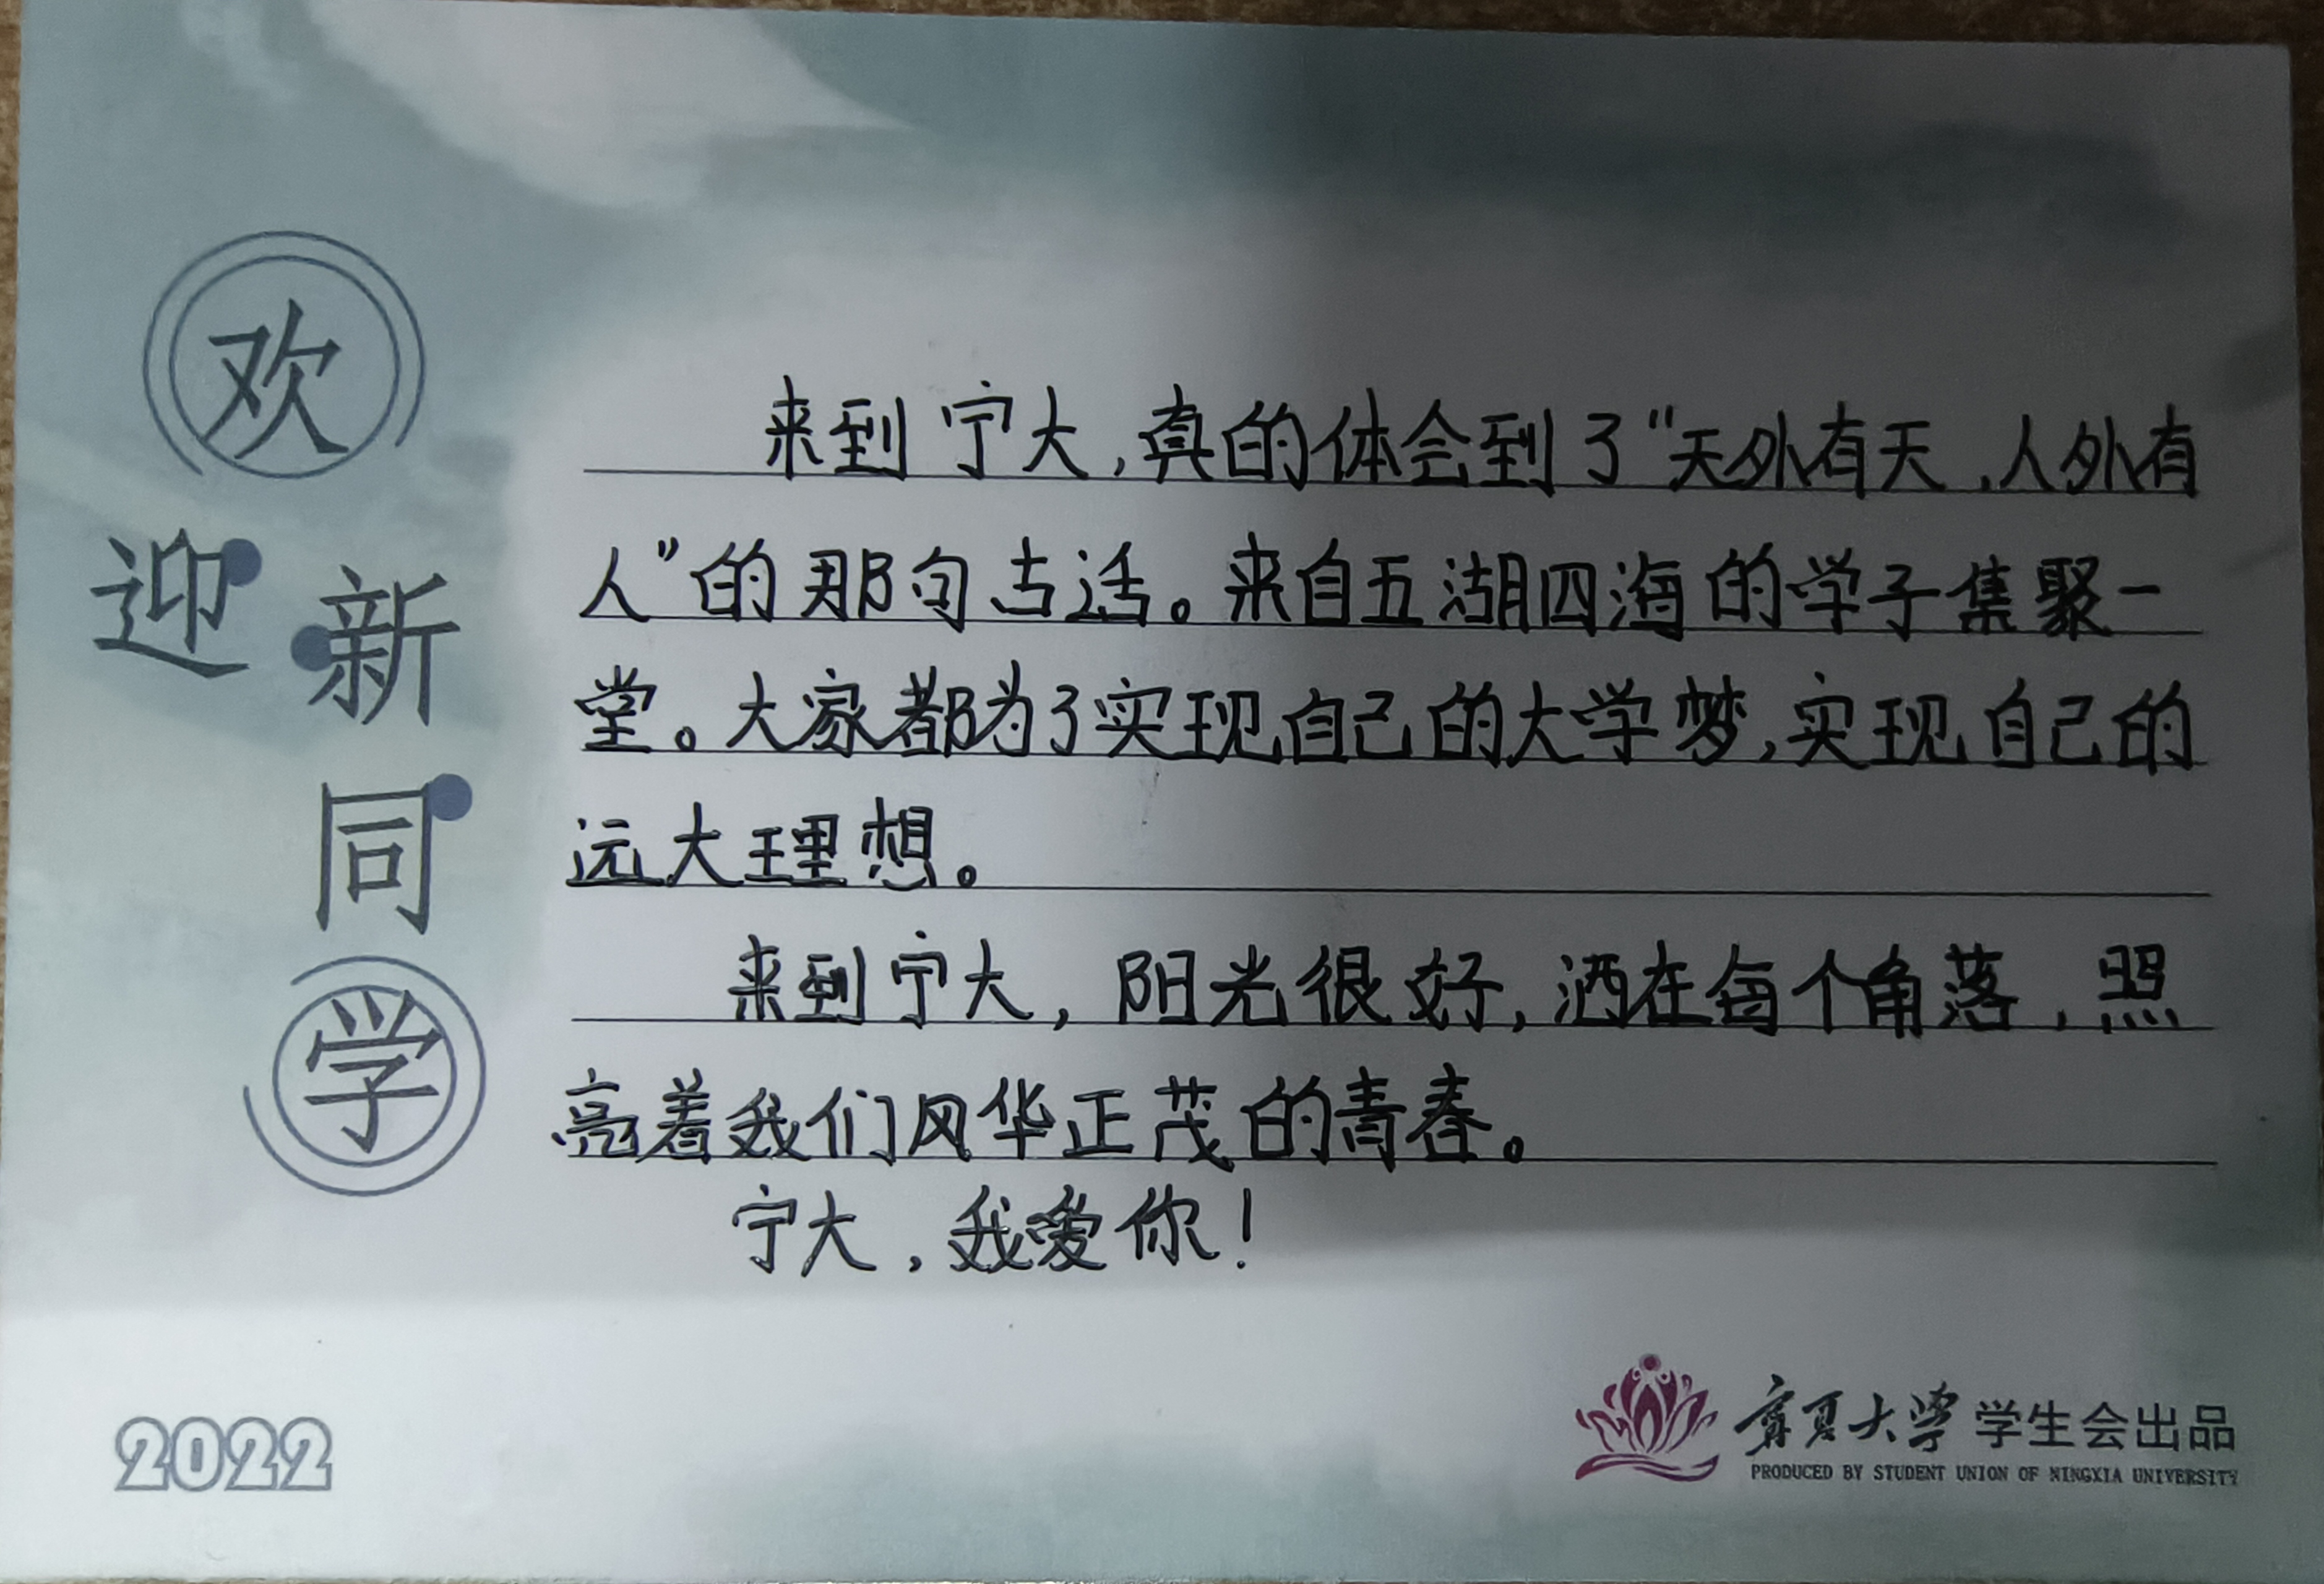 欢迎新同学
来到宁大,真的体会到了“天外有天,人外有
人”的那句古话。来自五湖四海的学子集聚一
堂。大家都为了实现自己的大学梦,实现自己的
远大理想。
来到宁大,阳光很好,洒在每个角落,照
亮着我们风华正茂的青春。
宁大,我爱你!
2022
宁夏大学 学生会出品
PRODUCED BY STUDENT UNION OF NINGXIA UNIVERSITY